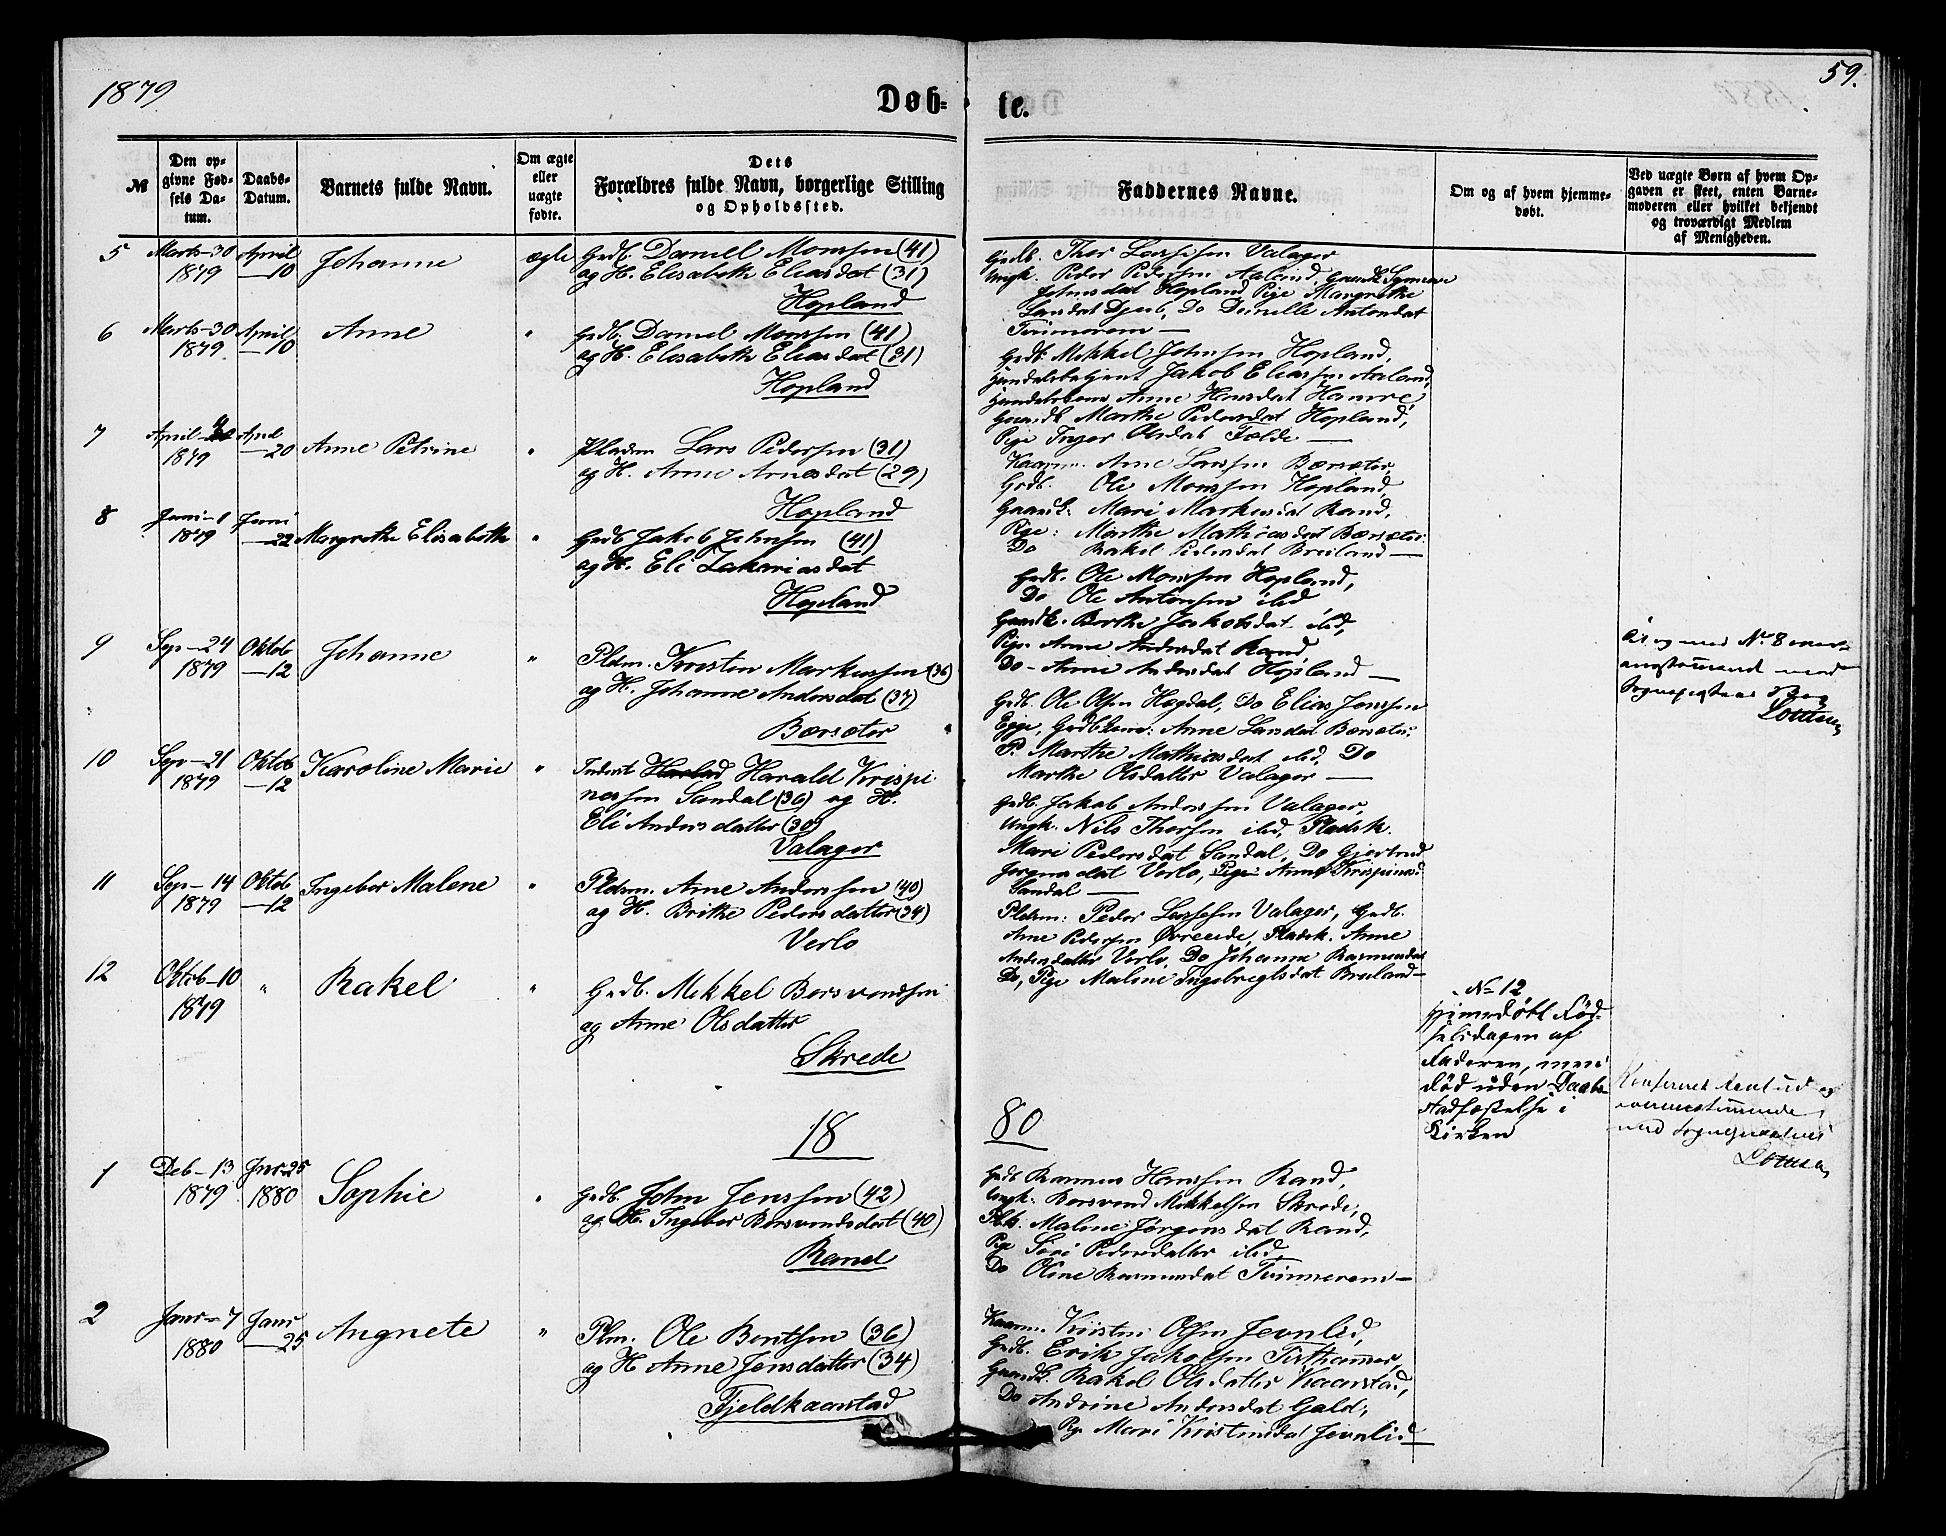 1879
Døb-
te.
59.
№
Den op-
givne Fød-
sels Da-
tum.
Daabs-
Datum.
Barnets fulde Navn.
Om ægte
eller
uægte
fødte.
Dets
Forældres fulde Navn, borgerlige Stilling
og Opholdssted.
Faddernes Navne.
Om og af hvem hjemme-
døbt.
Ved uægte Børn af hvem Op-
gaven er skeet, enten Barne-
moderen eller hvilket bekjendt
og troværdigt Medlem
af Menigheden.
5
Marts-30
1879
April
-10
Johanne
ægte
Grdb. Daniel Monssen (41)
og H. Elisabeth Eliasdat (31)
Hopland
Grdb. Thor Larssen Valager
Ungk. Peder Pedersen Aaland, Gaardk
Johnsdat Hopland Pige Margrethe
Larsdat Djub, Do Antondat
6
Marts-30
1879
April
-10
Anne
"
Grdb. Daniel Monssen (41)
og H. Elisabeth Eliasdat (31)
Hopland
Grdb. Mikkel Johnsen Hopland,
Handelsbetjent Jakob Eliassen Aaland,
Anne Hansdat Hamre
Gaardk Marthe Pedersdat Hopland,
Pige Inger Olsdat Folde —
7
April-
1879
Apl
-20
Anne Petrine
"
Pladsm Lars Pedersen (31)
og H. Anne Arnesdat (29)
Hopland
Kaarm. Arne Larssen Børsæter,
Grdb. Ole Monssen Hopland,
Gaardk: Mari Markusdat Rand,
Pige: Marthe Mathiasdat Børsæter
Do Rakel Pedersdat Breiland —
8
Juni-1
1879
Juni
-22
Margrethe Elisabeth
"
Grdb Jakob Johnsen (41)
og H. Eli Zakariasdat
Hopland
Grdb. Ole Monssen Hopland,
Do Ole Antonsen ibid
Gaardk. Berthe Jakobsdat ibid,
Pige Anne Andersdat Rand
Do - Anne Andersdat Hopland —
9
Sep-24
1879
Oktob
-12
Johanne
"
Pldm. Kristen Markussen (36)
og H. Johanne Andersdat (37)
Børsæter
Grdb. Ole Olsen Hegdal, Do Elias Jonssen
Egge, Grdbkone: Anne Larsdat Børsæter,
P. Marthe Mathiasdat ibid, Do
Marthe Olsdatter Valager —
med No 8
10
Sep-21
1879
Oktob
-12
Karoline Marie
"
Inderst Harald Krispi-
nessen Sandal (36) og H.
Eli Andersdatter (30)
Valager
Grdb. Jakob Anderssen Valager,
Ungk. Nils Thorsen ibid, Pladsk.
Mari Pedersdat Sandal, Do Gjertrud
Jørgensdat Verlo, Pige Anne Krispinusd
Sandal —
11
Sep-14
1879
Oktob
-12
Ingebor Malene
"
Pldsm. Arne Anderssen (40)
og H. Brithe Pedersdatter (34)
Verlo
Pldsm: Peder Larssen Valager, Grdb.
Arne Pedersen Øvreeide, Pladsk. Anne
Andersdatter Verlo, Do Johanne Rasmusdat
Do, Pige Malene Ingebregtsdat Breiland—
12
Oktob-10
1879
"
Rakel
"
Grdb. Mikkel Borsvendsen
og Anne Olsdatter
Skrede
No 12
hjemmedøbt Fød-
selsdagen af
Faderen, men
død uden Daabs-
stadfæstelse i
Kirken
18
80
1
Deb-13
1879
Janr 25
1880
Sophie
"
Grdb. John Jenssen (42)
og H. Ingebor Borsvendsdat (40)
Rand
Grdb Rasmus Hanssen Rand,
Ungk: Borsvend Mikkelsen Skrede,
Malene Jørgensdat Rand,
Pige Siri Pedersdatter ibid,
Do Oline Rasmusdat Tvinnereim—
2
Janr-7
1880
Janr
-25
Angnete
"
Plm. Ole Bentsen (36)
og H Anne Jensdatter (34)
Fjeldkaarstad
Kaarm. Kristen Olsen Jevnlid,
Grdb. Erik Jakobsen
Gaardk. Rakel Olsdatter Kaarstad,
Do Andrine Andersdat Gald,
Pige Mari Kristensdat Jevnlid